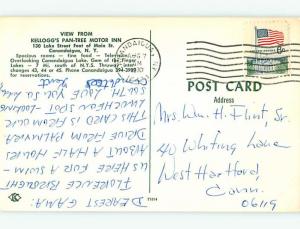 VIEW FROM
KELLOGG'S PAN-TREE MOTOR INN
130 Lake Street Foot of Main St.
Canandaigua, N. Y.
Spacious rooms - fine food - Television
Overlooking Canandaigua Lake, Gem of the Finger
Lakes - 7 Mi. south of N.Y.S. Thruway inter-
changes 43, 44 or 45. Phone Canandaigua 394-3909
for reservations.
CANANDAIGUA
POST CARD
Address
DEAREST GAMA:
FLORENCE BROUGHT
US HERE FOR A SWIM -
ABOUT A HALF HOUR
DRIVE FROM PALMYRA
THIS CARD IS FROM OUR
LUNCHEON SPOT -
Mrs. Wm. H. Flint, Sr.
40 Whiting Lane
West Hartford,
Conn.
06119